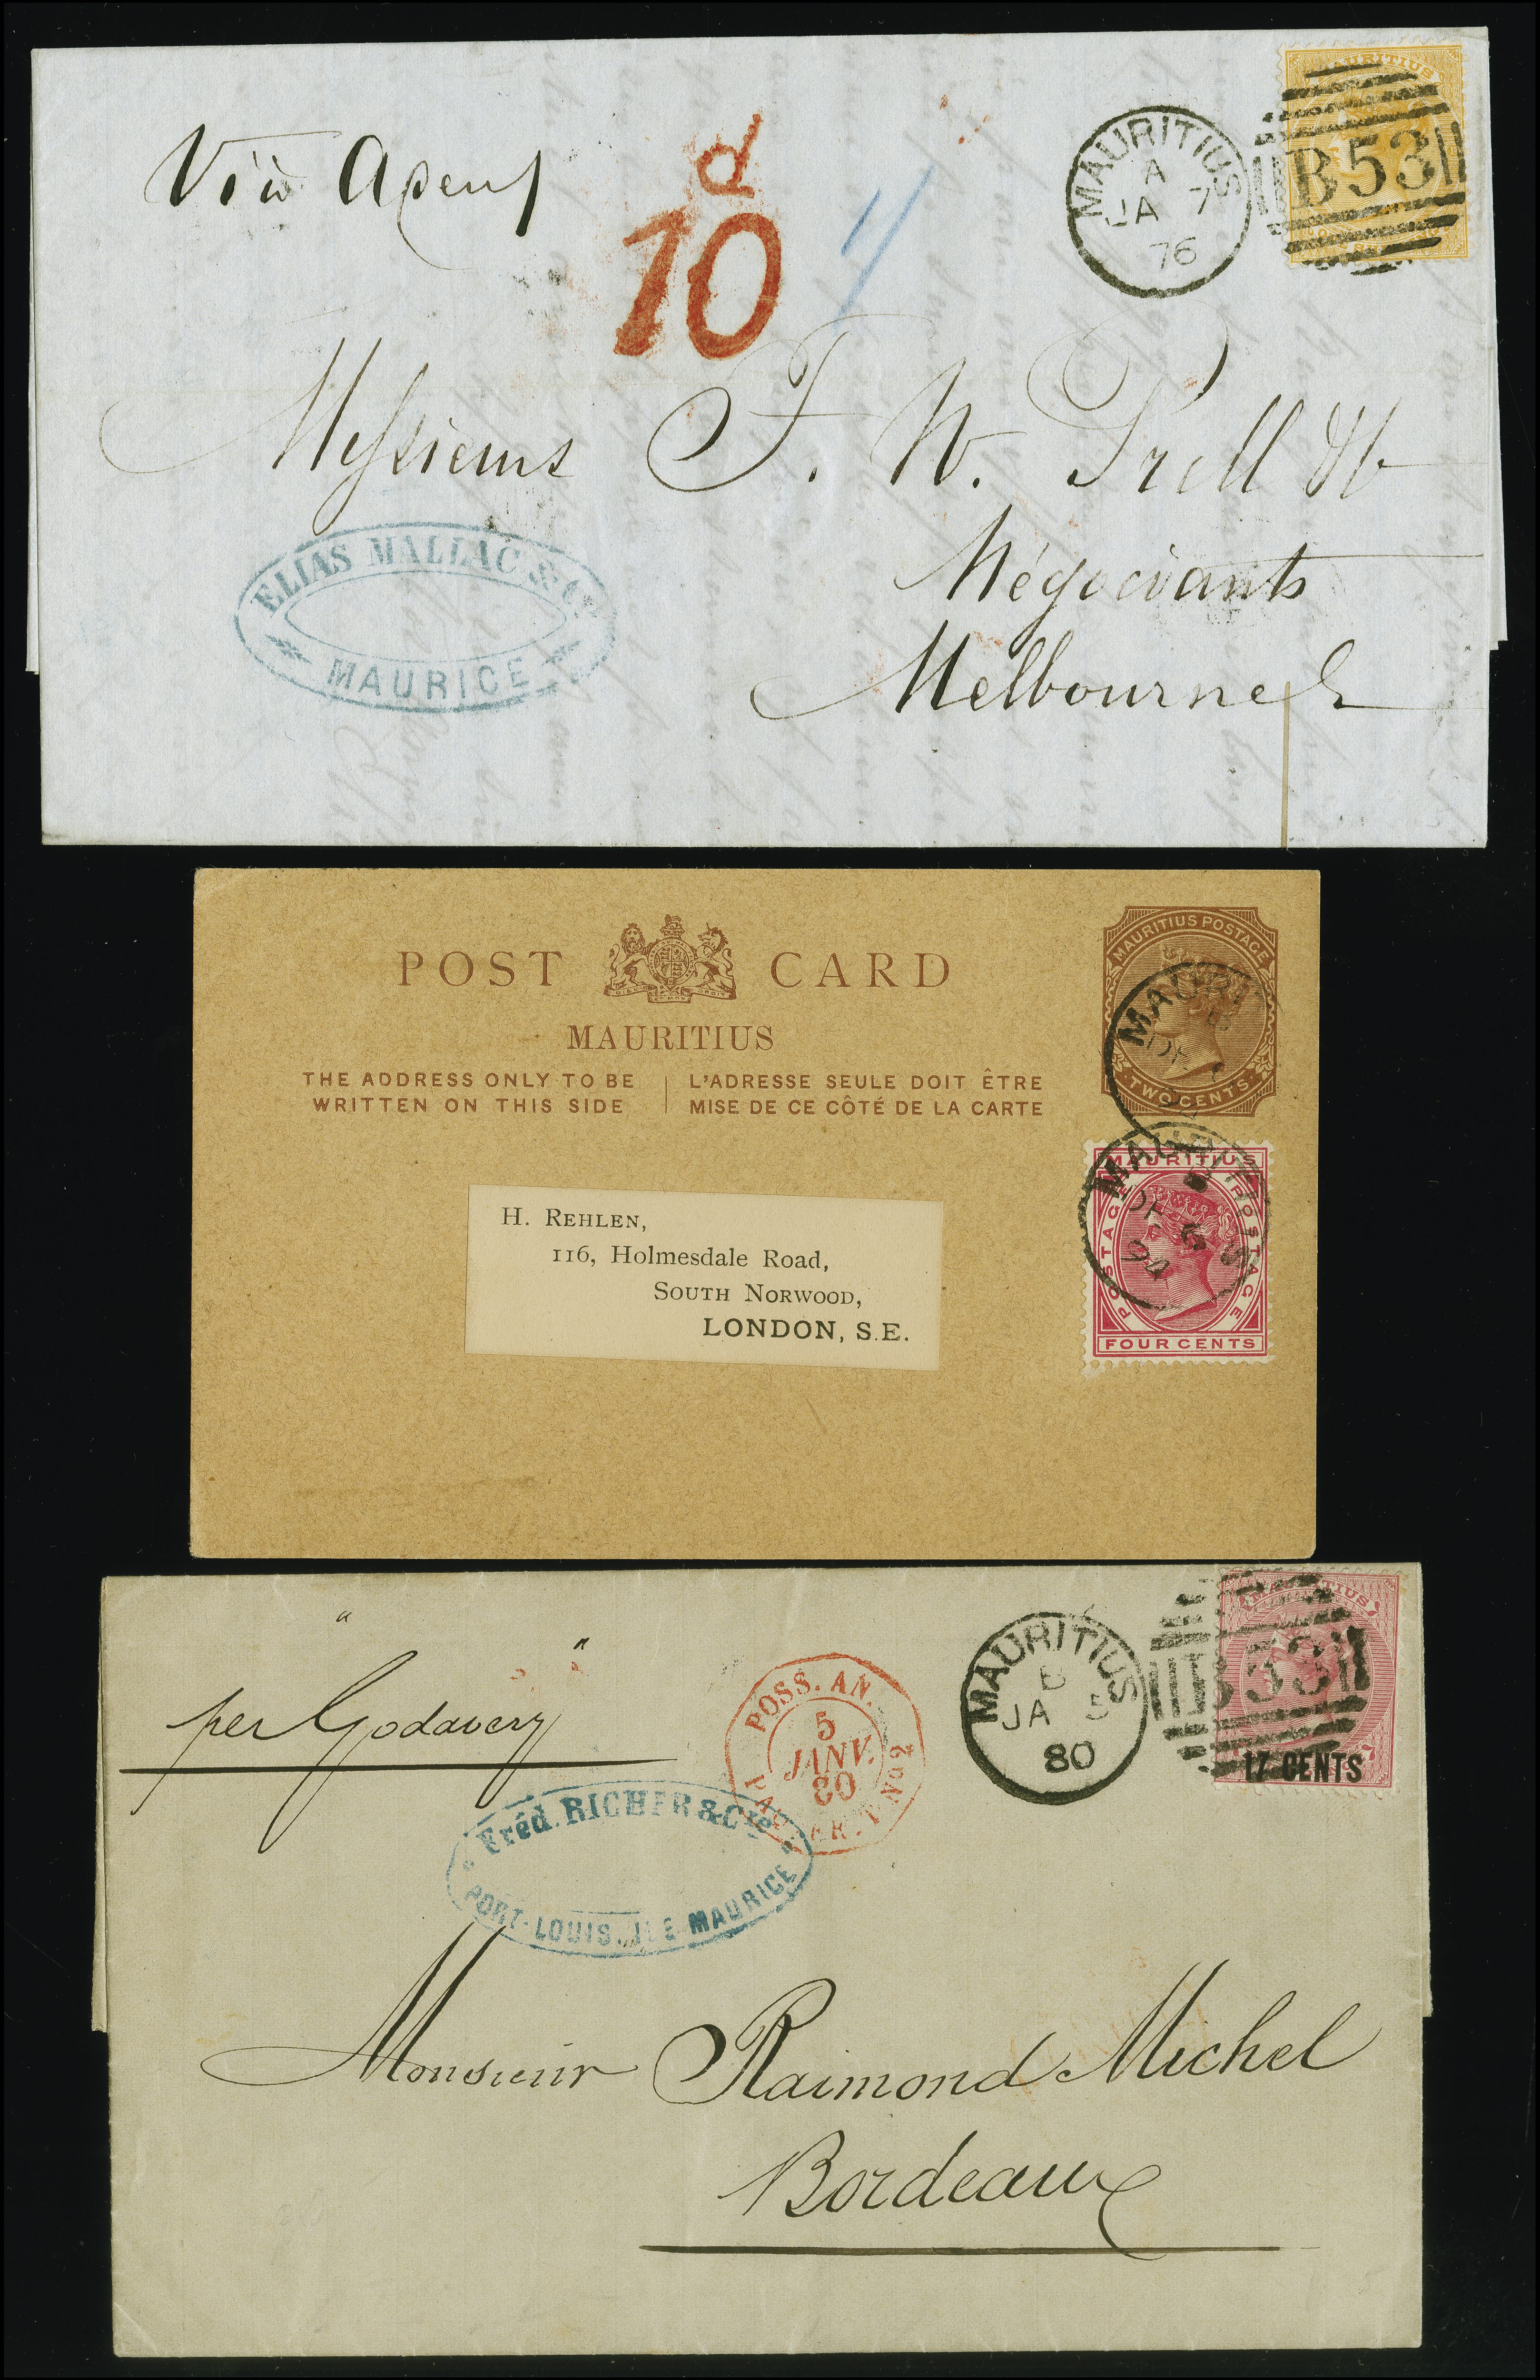 MAURITIUS
Viâ Aden
d
10
MAURITIUS
A
JA 7
76
B53
Messieurs F. W. Prell & Co
ELIAS MALLAC & Cie
MAURICE
Négociants
Melbourne
POST CARD
MAURITIUS
THE ADDRESS ONLY TO BE
WRITTEN ON THIS SIDE
L'ADRESSE SEULE DOIT ÊTRE
MISE DE CE CÔTÉ DE LA CARTE
MAURITIUS POSTAGE
TWO CENTS
MAURITIUS
POSTAGE
POSTAGE
FOUR CENTS
MAURITIUS
DE 6
94
H. REHLEN,
116, Holmesdale Road,
SOUTH NORWOOD,
LONDON, S.E.
"per Godavery"
POSS. AN.
5
JANV.
80
PAQ. FR. T No 2
MAURITIUS
B
JA 5
80
MAURITIUS
B53
17 CENTS
Fréd. RICHER & Cie
PORT-LOUIS, ILE MAURICE
Monsieur Raimond Michel
Bordeaux